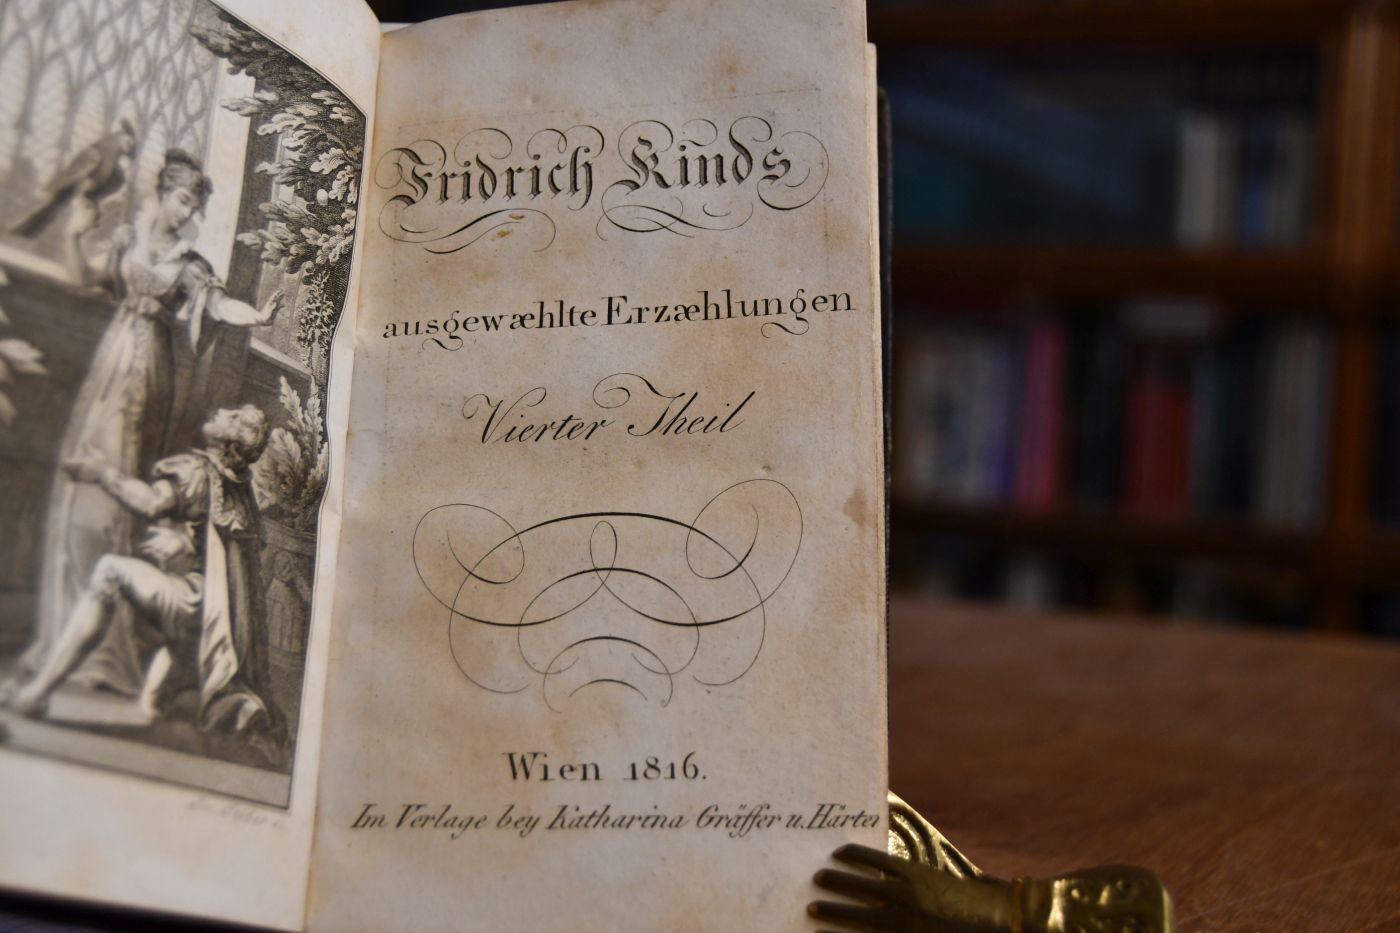 Fridrich Kinds
ausgewæhlte Erzæhlungen
Vierter Theil
Wien 1816.
Im Verlage bey Katharina Gräffer u. Härter